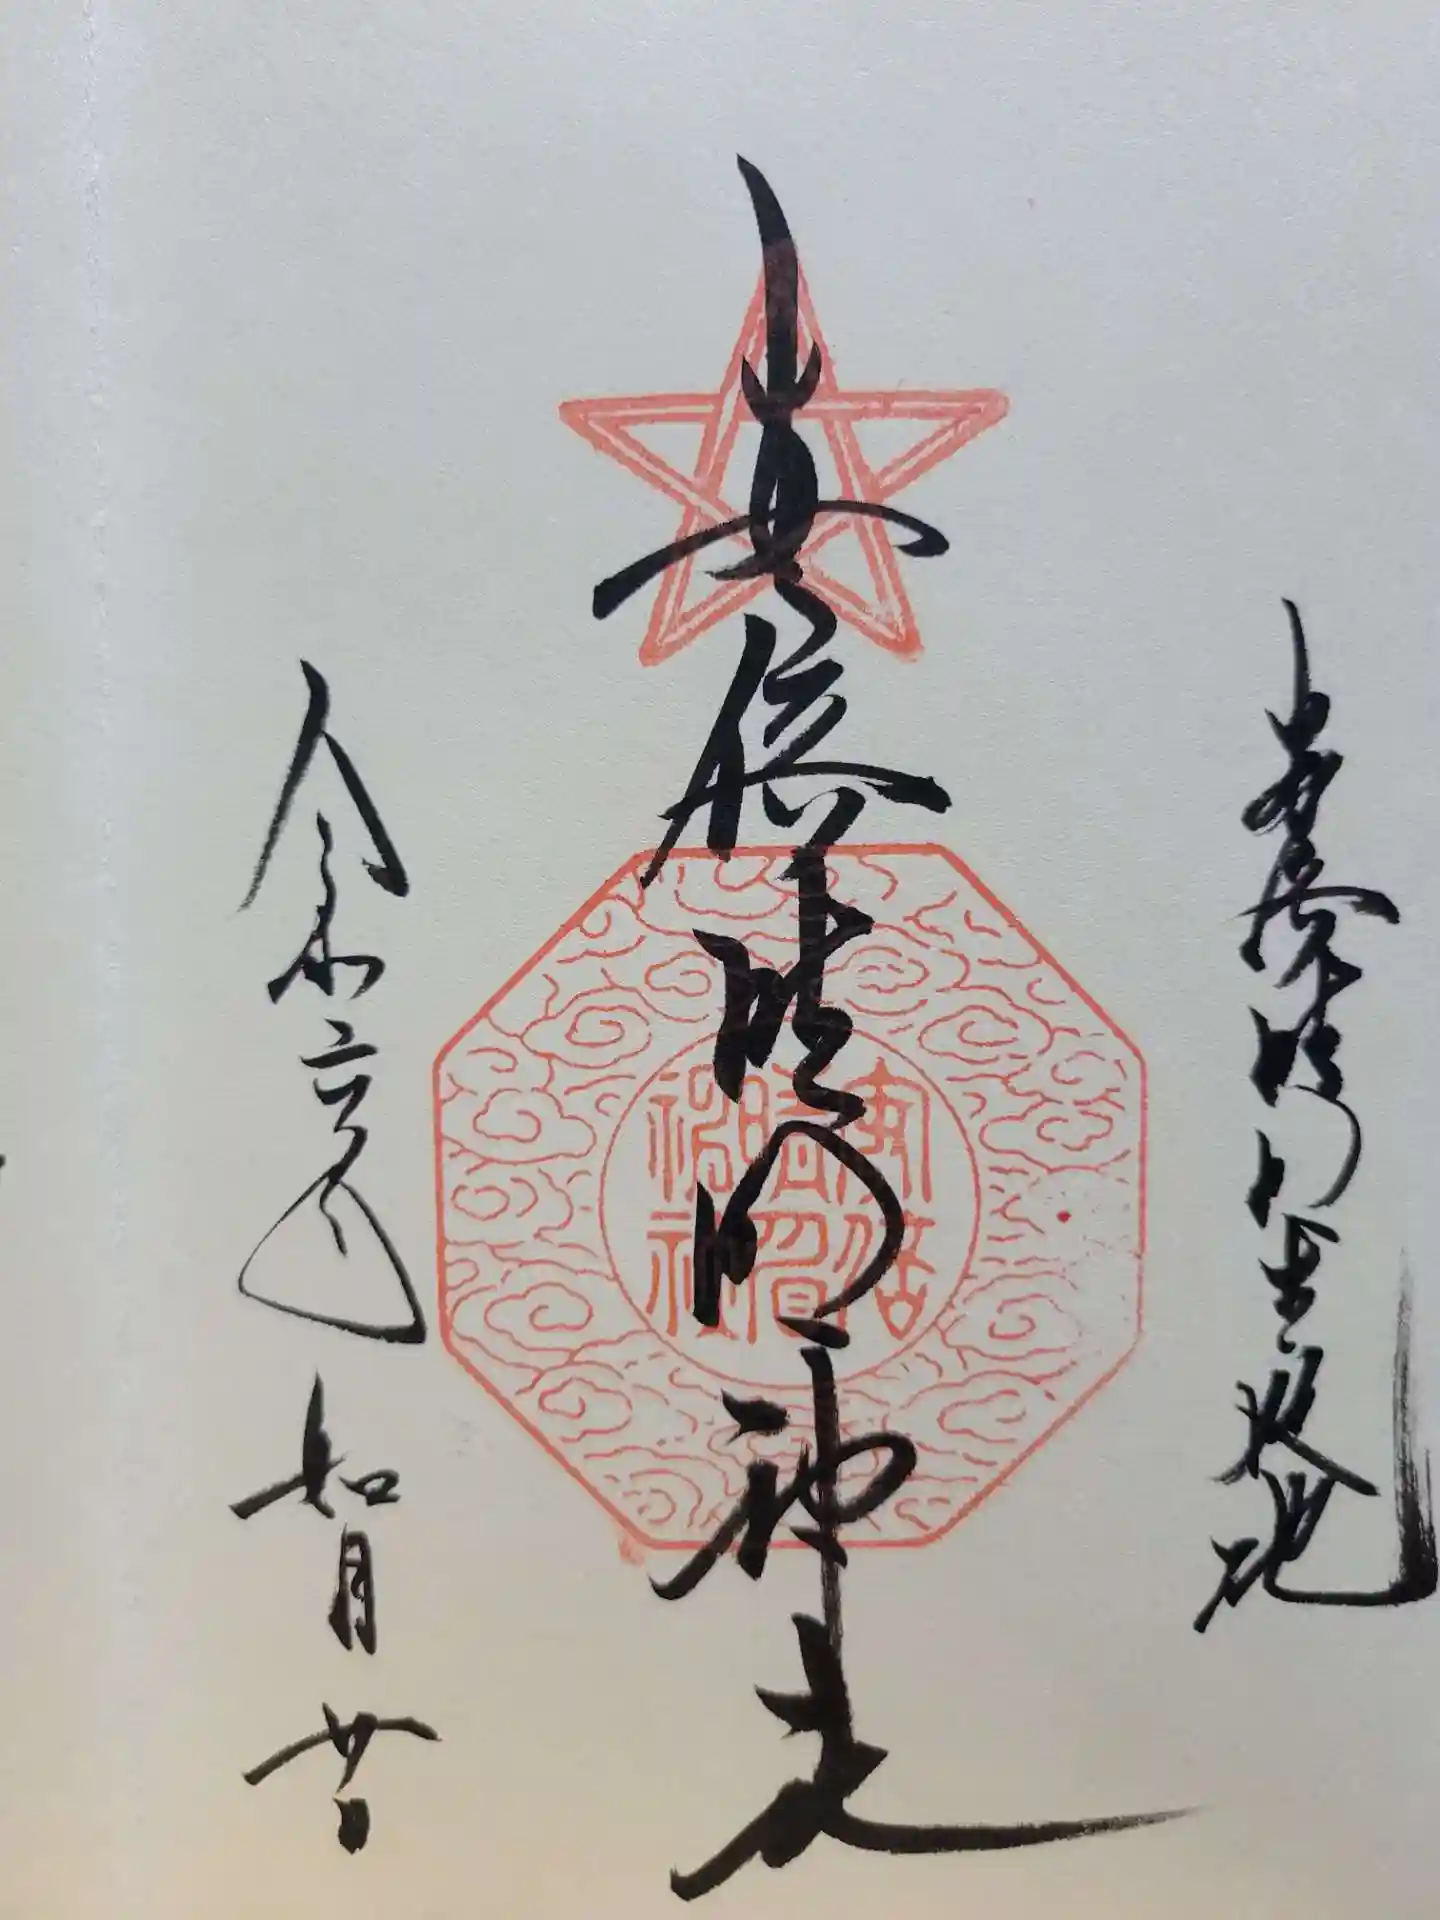 晴明生誕地
安倍晴明神社
安倍
晴明
神社
令和六年 如月廿日